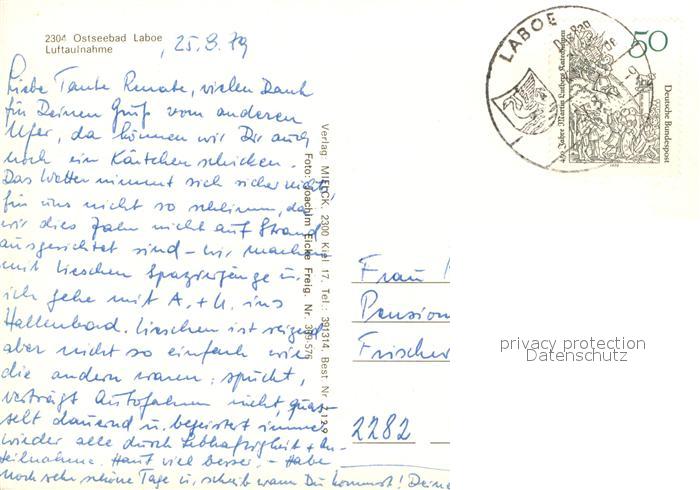 2304 Ostseebad Laboe
Luftaufnahme
, 25.9.79
Liebe Tante Renate, vielen Dank
für Deinen Gruß vom anderen
Ufer, da können wir Dir auch
noch ein Kärtchen schicken.
Das Wetter nimmt sich sicher nicht
für uns nicht so schlimm, da
wir dies Jahr nicht auf Strand
ausgerichtet sind - wir machen
mit Lieschen Spaziergänge u.
ich gehe mit A. + U. ins
Hallenbad. Lieschen ist reizend
aber nicht so einfach wie
die andern waren: spuckt,
verträgt Autofahren nicht, quas-
selt dauernd u. begeistert immer
wieder alle durch Lebhaftigkeit + An-
teilnahme. Haut viel besser. - Habe
noch sehr schöne Tage u. schreib wann Du kommst! Deine
Verlag: MIELCK, 2300 Kiel 17, Tel.: 391314, Best. Nr.
Foto: Joachim Eicke Freig. Nr. 389-576
LABOE
50
Deutsche Bundespost
450 Jahre Martin Luthers Katechismen
Frau
Pension
Frischer
2282
privacy protection
Datenschutz